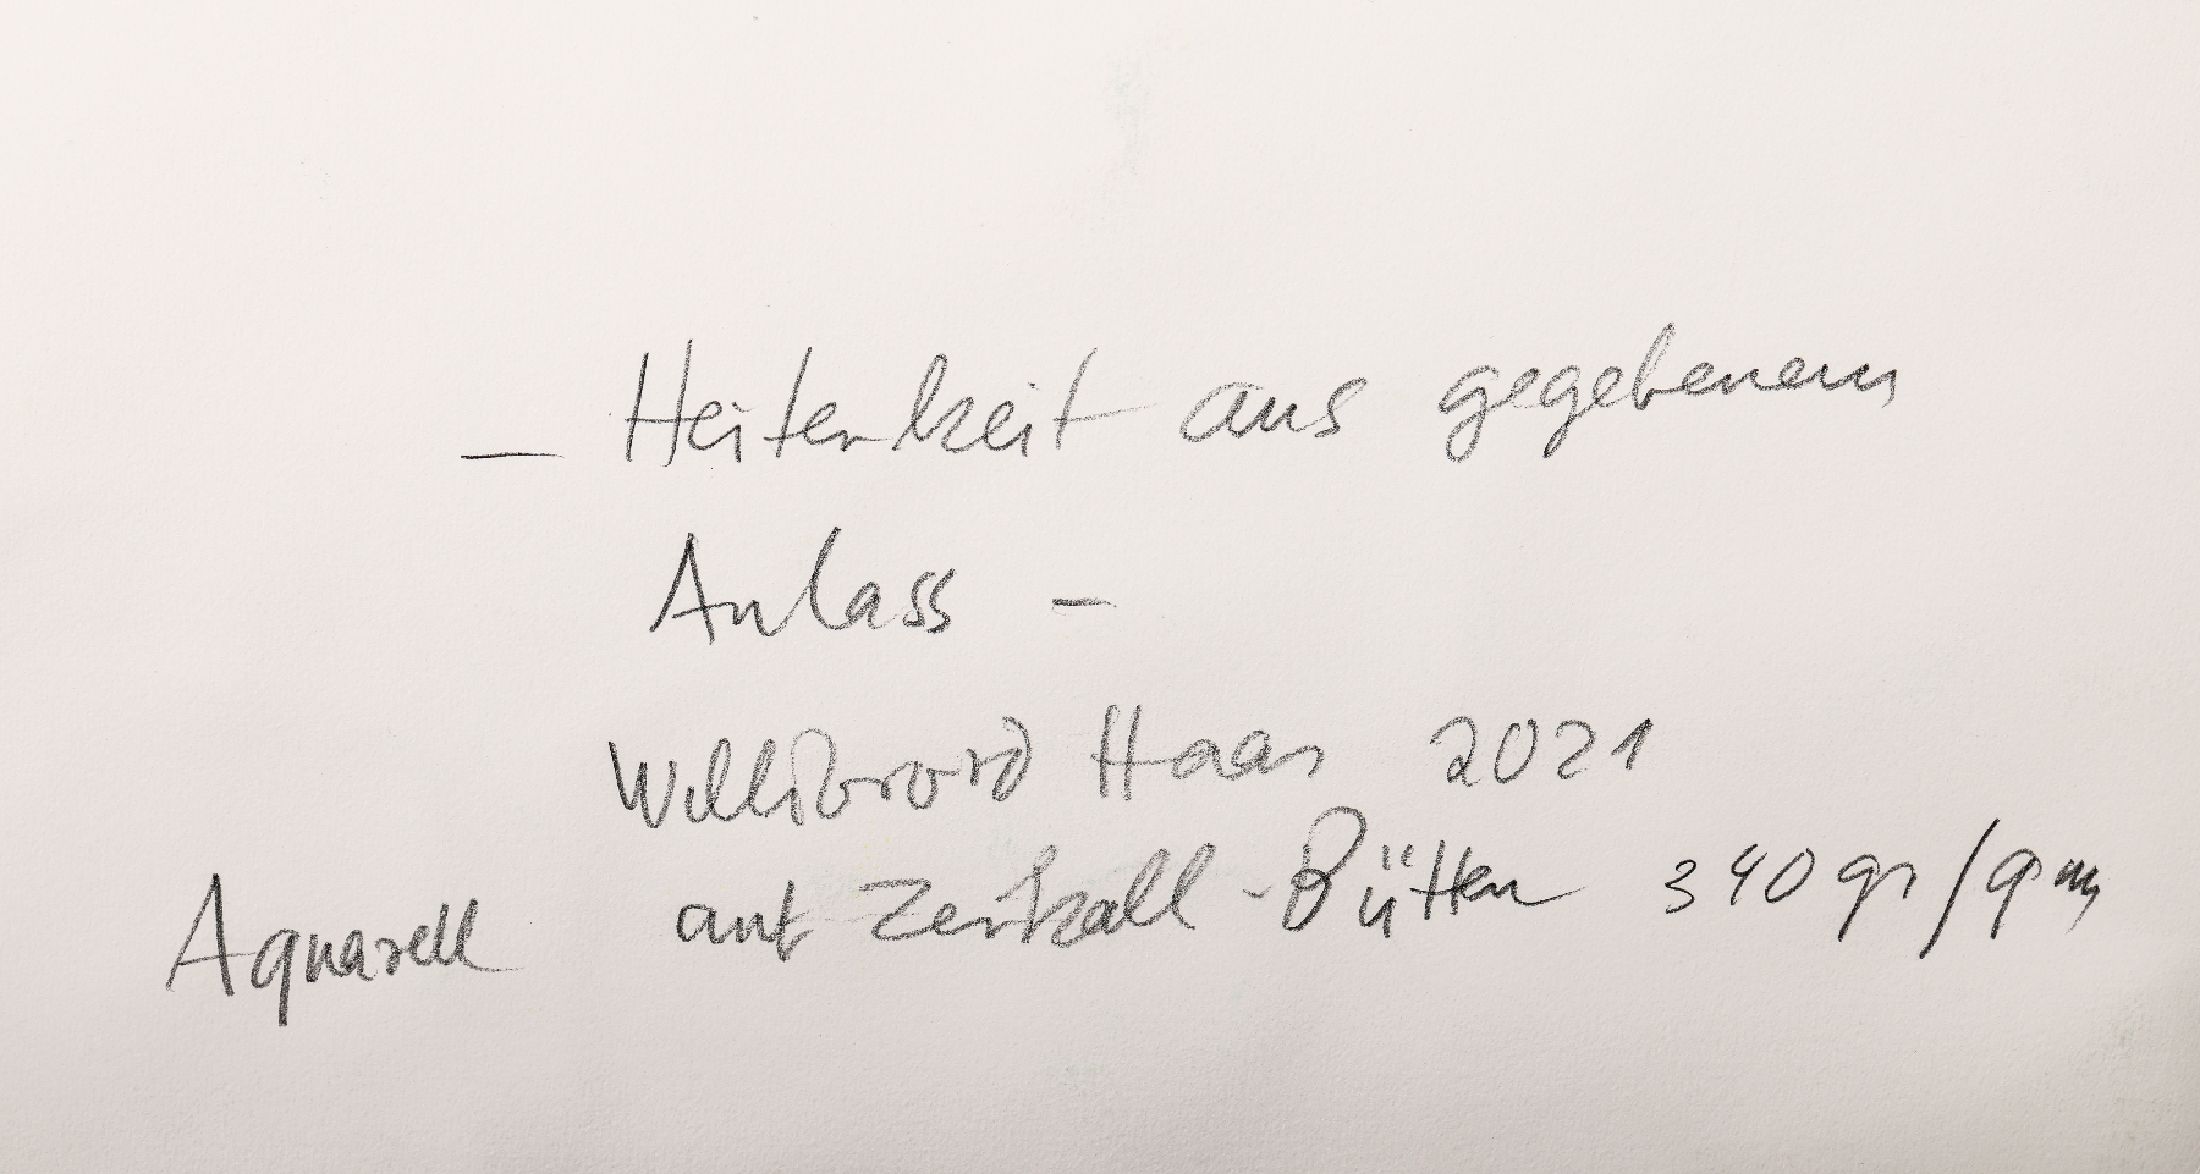 — Heiterkeit aus gegebenem
Anlass –
Willibrord Haas 2021
Aquarell auf Zerkall-Bütten 340 gr/qm